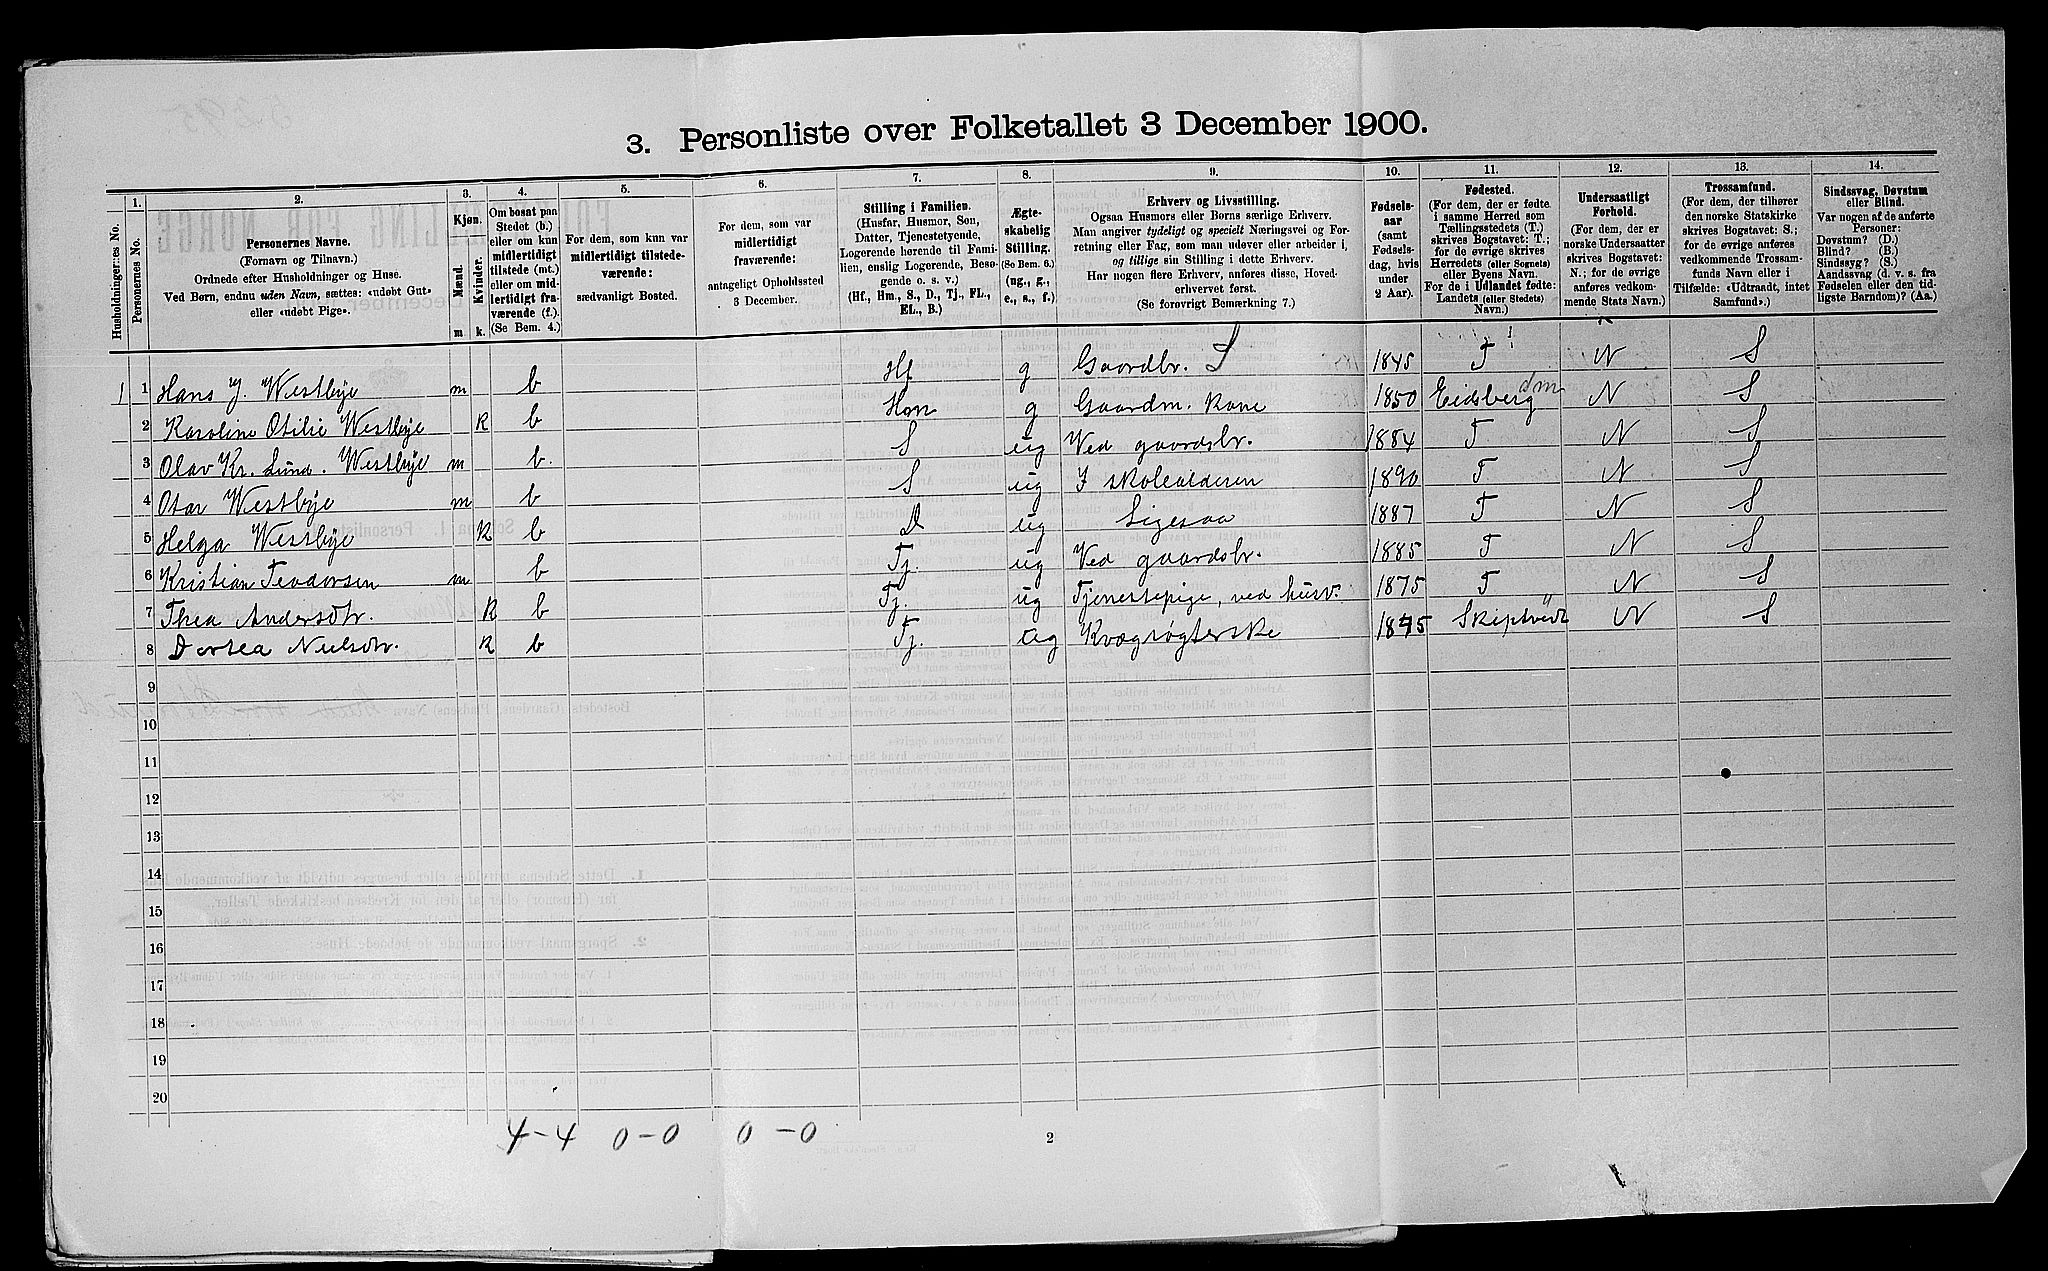 3. Personliste over Folketallet 3 December 1900.
1. 2. 3. 4. 5. 6. 7. 8. 9. 10. 11. 12. 13. 14.
Husholdningernes No.
Personernes No.
Personernes Navne.
(Fornavn og Tilnavn.)
Ordnede efter Husholdninger og Huse.
Ved Børn, endnu uden Navn, sættes: «udøbt Gut»
eller «udøbt Pige».
Kjøn.
Mænd.
Kvinder.
m k.
Om bosat paa
Stedet (b.)
eller om kun
midlertidigt
tilstede (mt.)
eller om mid-
lertidigt fra-
værende (f.)
(Se Bem. 4.)
For dem, som kun var
midlertidigt tilstede-
værende:
sædvanligt Bosted.
For dem, som var
midlertidigt
fraværende:
antageligt Opholdssted
3 December.
Stilling i Familien.
(Husfar, Husmor, Søn,
Datter, Tjenestetyende,
Logerende hørende til Fami-
lien, enslig Logerende, Besø-
gende o. s. v.)
(Hf., Hm., S., D., Tj., FL.,
EL., B.)
Ægte-
skabelig
Stilling.
(Se Bem. 6.)
(ug., g.,
e., s., f.)
Erhverv og Livsstilling.
Ogsaa Husmors eller Børns særlige Erhverv.
Man angiver tydeligt og specielt Næringsvei og For-
retning eller Fag, som man udøver eller arbeider i,
og tillige sin Stilling i dette Erhverv.
Har nogen flere Erhverv, anføres disse, Hoved-
erhvervet først.
(Se forøvrigt Bemærkning 7.)
Fødsels-
aar
(samt
Fødsels-
dag, hvis
under
2 Aar).
Fødested.
(For dem, der er fødte
i samme Herred som
Tællingsstedets (T.)
skrives Bogstavet: T.;
for de øvrige skrives
Herredets (eller Sognets)
eller Byens Navn.
For de i Udlandet fødte:
Landets (eller Stedets)
Navn.)
Undersaatligt
Forhold.
(For dem, der er
norske Undersaatter
skrives Bogstavet:
N.; for de øvrige
anføres vedkom-
mende Stats Navn.)
Trossamfund.
(For dem, der tilhører
den norske Statskirke
skrives Bogstavet: S.;
for de øvrige anføres
vedkommende Trossam-
funds Navn eller i
Tilfælde: «Udtraadt, intet
Samfund».)
Sindssvag, Døvstum
eller Blind.
Var nogen af de anførte
Personer:
Døvstum? (D.)
Blind? (B.)
Sindssyg? (S.)
Aandssvag (d. v. s. fra
Fødselen eller den tid-
ligste Barndom)? (Aa.)
1 1 Hans J. Westbye m b Hf g Gaardbr. S 1845 T N S
2 Karoline Otilie Westbye K b Hm g Gaardm. kone 1850 Eidsberg dm N S
3 Olav Kr. Lund. Westbye m b. S ug Ved gaardsbr. 1884 T N S
4 Otar Westbye m b S ug I skolealderen 1890 T N S
5 Helga Westbye K b D ug Ligesaa 1887 T N S
6 Kristian Teodorsen m b Tj. ug Ved gaardsbr. 1885 T N S
7 Thea Andersdtr. K b Tj. ug Tjenestepige, ved husv. 1875 T N S
8 Dortea Nielsdtr. K b Tj. ug Kvægrøgterske 1845 Skiptvedt N S
9
10
11
12
13
14
15
16
17
18
19
20
4-4 0-0 0-0
2